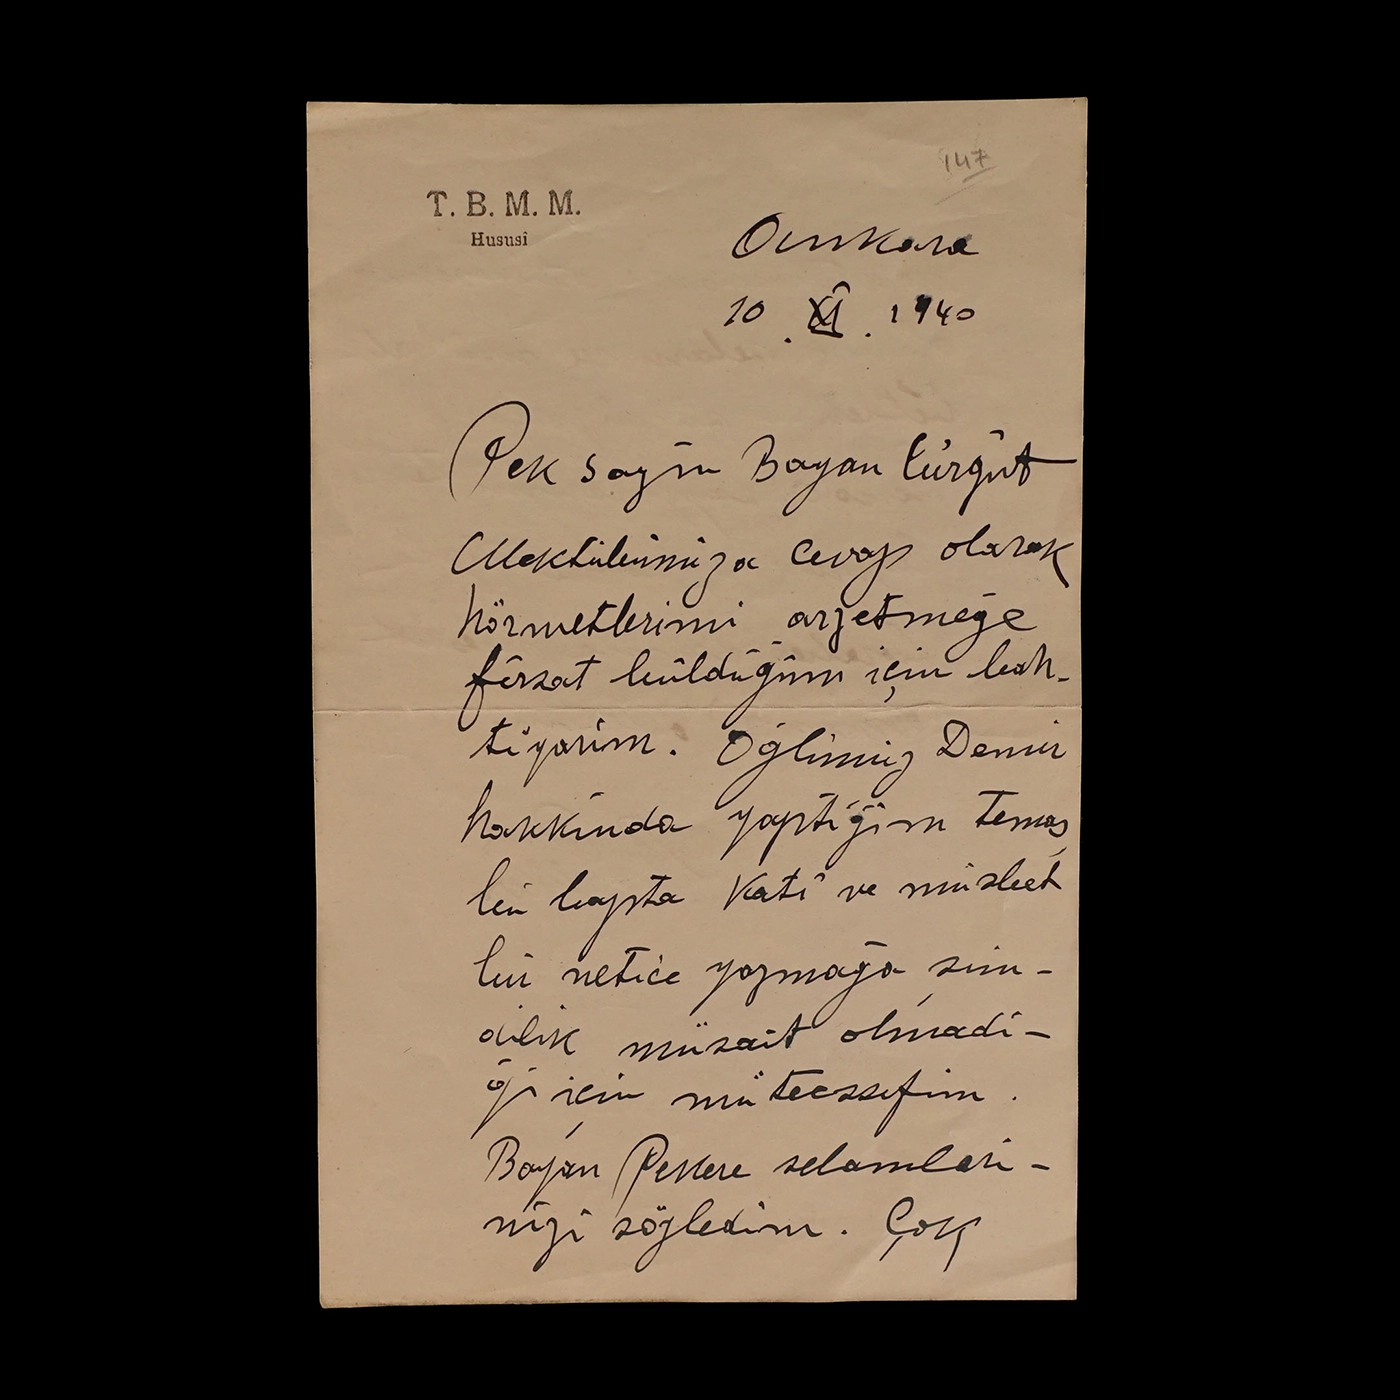 147
T. B. M. M.
Hususî
Ankara
10 . XI . 1940
Pek sayın Bayan Turgut
Mektubunuza cevap olarak
hörmetlerimi arzetmeğe
fırsat bulduğum için bah-
tiyarım. Oğlunuz Demir
hakkında yaptığım temas
bu bapta kati ve müsbet
bir netice yazmağa şim-
dilik müsait olmadı-
ğı için müteessifim.
Bayan Pekere selamları-
nızı söyledim. Çok